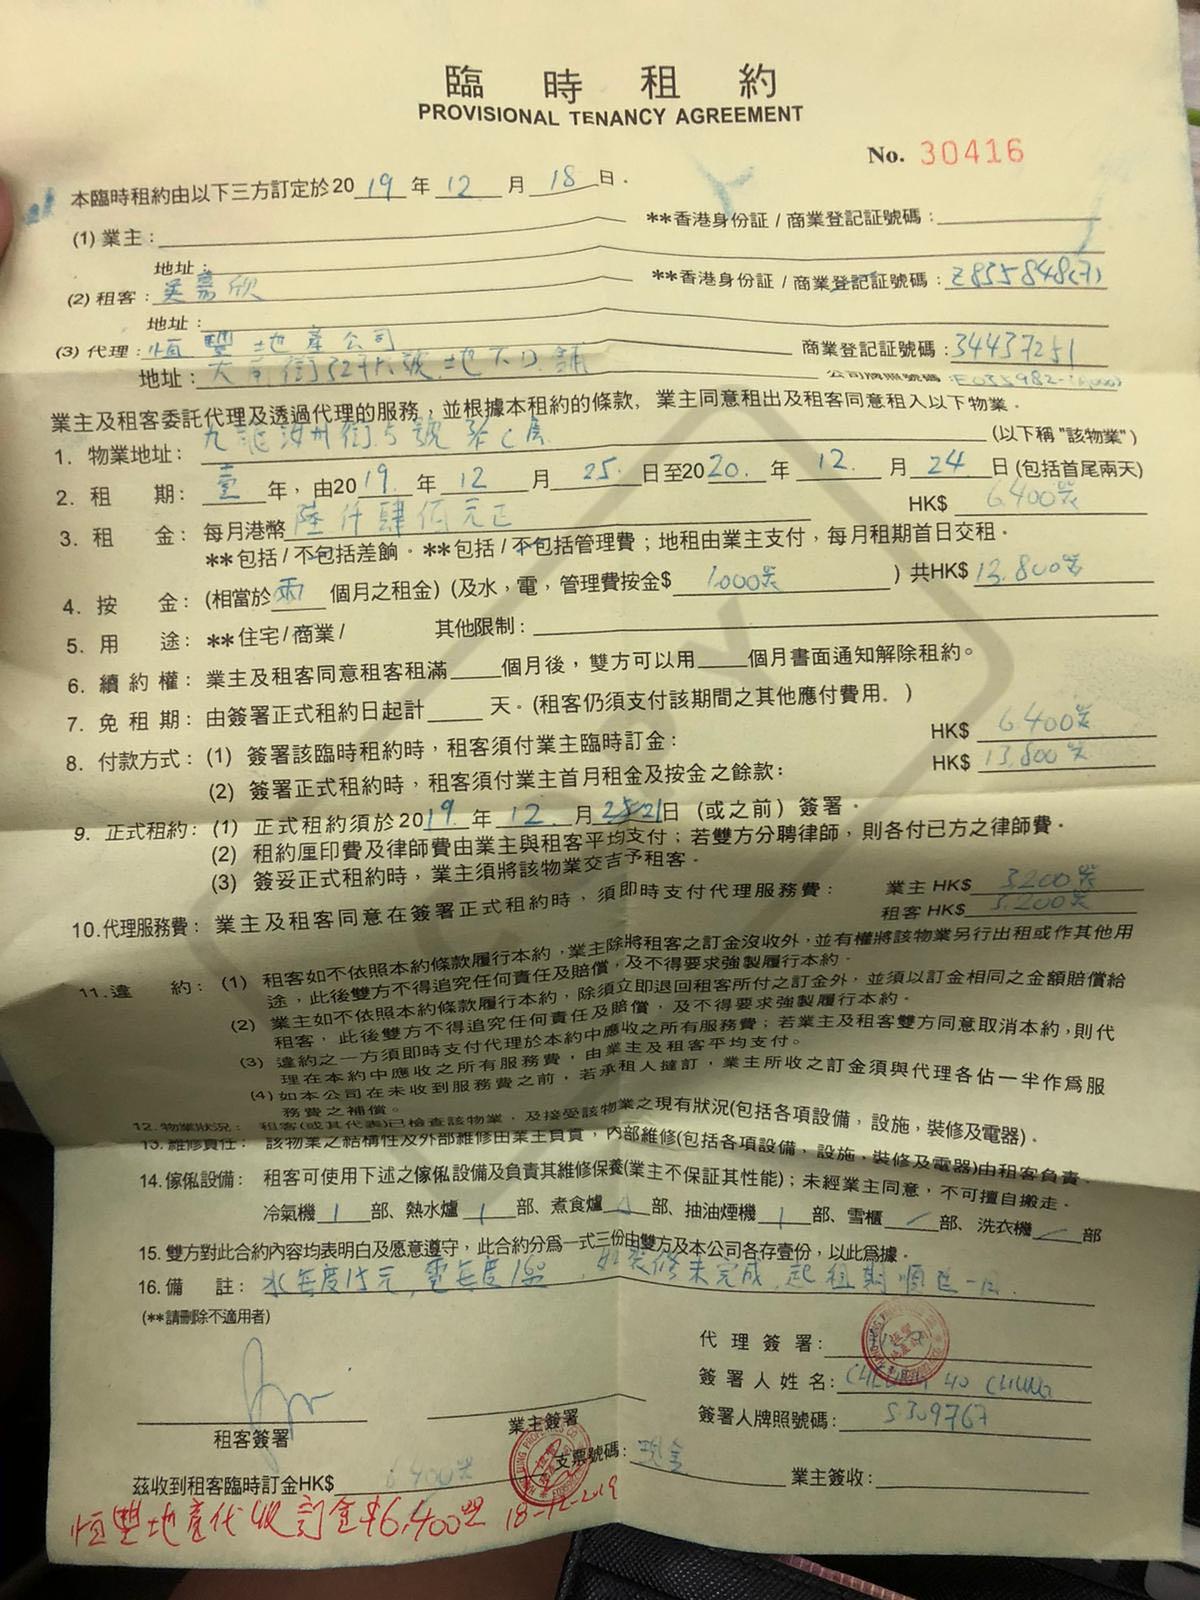 臨時租約
PROVISIONAL TENANCY AGREEMENT
No. 30416
本臨時租約由以下三方訂定於2019年12月18日．
(1) 業主： **香港身份証 / 商業登記証號碼：
地址：
(2) 租客：吳嘉欣 **香港身份証 / 商業登記証號碼：Z835848(7)
地址：
(3) 代理：恒豐地產公司 商業登記証號碼：34437251
地址：大南街 號地下D舖 公司牌照號碼：
業主及租客委託代理及透過代理的服務，並根據本租約的條款，業主同意租出及租客同意租入以下物業．
1. 物業地址：九龍汝州街5號 C房 (以下稱"該物業")
2. 租期：壹年，由2019.年12月25.日至2020.年12.月24日(包括首尾兩天)
3. 租金：每月港幣陸仟肆佰元正 HK$ 6,400
**包括 / 不包括差餉．**包括 / 不包括管理費；地租由業主支付，每月租期首日交租．
4. 按金：(相當於兩個月之租金) (及水，電，管理費按金$ 1,000) 共HK$ 13,800
5. 用途：**住宅 / 商業 / 其他限制：
6. 續約權：業主及租客同意租客租滿 個月後，雙方可以用 個月書面通知解除租約。
7. 免租期：由簽署正式租約日起計 天．(租客仍須支付該期間之其他應付費用．)
8. 付款方式：(1) 簽署該臨時租約時，租客須付業主臨時訂金： HK$ 6,400
(2) 簽署正式租約時，租客須付業主首月租金及按金之餘款： HK$ 13,800
9. 正式租約：(1) 正式租約須於2019年12.月 21日 (或之前) 簽署．
(2) 租約厘印費及律師費由業主與租客平均支付；若雙方分聘律師，則各付已方之律師費．
(3) 簽妥正式租約時，業主須將該物業交吉予租客．
10.代理服務費：業主及租客同意在簽署正式租約時，須即時支付代理服務費： 業主 HK$ 3200
租客 HK$ 3,200
11.違約：(1) 租客如不依照本約條款履行本約，業主除將租客之訂金沒收外，並有權將該物業另行出租或作其他用
途，此後雙方不得追究任何責任及賠償，及不得要求強製履行本約．
(2) 業主如不依照本約條款履行本約，除須立即退回租客所付之訂金外，並須以訂金相同之金額賠償給
租客，此後雙方不得追究任何責任及賠償，及不得要求強製履行本約．
(3) 違約之一方須即時支付代理於本約中應收之所有服務費；若業主及租客雙方同意取消本約，則代
理在本約中應收之所有服務費，由業主及租客平均支付。
(4) 如本公司在未收到服務費之前，若承租人撻訂，業主所收之訂金須與代理各佔一半作爲服
務費之補償。
12.物業狀況：租客(或其代表)已檢查該物業，及接受該物業之現有狀況(包括各項設備，設施，裝修及電器)．
13.維修責任：該物業之結構性及外部維修由業主負責，內部維修(包括各項設備，設施，裝修及電器)由租客負責．
14.傢俬設備：租客可使用下述之傢俬設備及負責其維修保養(業主不保証其性能)；未經業主同意，不可擅自搬走．
冷氣機 1 部、熱水爐 1 部、煮食爐 部、抽油煙機 1 部、雪櫃 部、洗衣機 部
15. 雙方對此合約內容均表明白及愿意遵守，此合約分爲一式三份由雙方及本公司各存壹份，以此爲據．
16. 備註：水每度15元，電每度 ，如裝修未完成，起租期順延一日．
(**請刪除不適用者)
代理簽署：
簽署人姓名：
簽署人牌照號碼：S309767
租客簽署
業主簽署
茲收到租客臨時訂金HK$ 6,400 支票號碼：現金 業主簽收：
恒豐地產代收訂金$6,400 18-12-2019
COPY